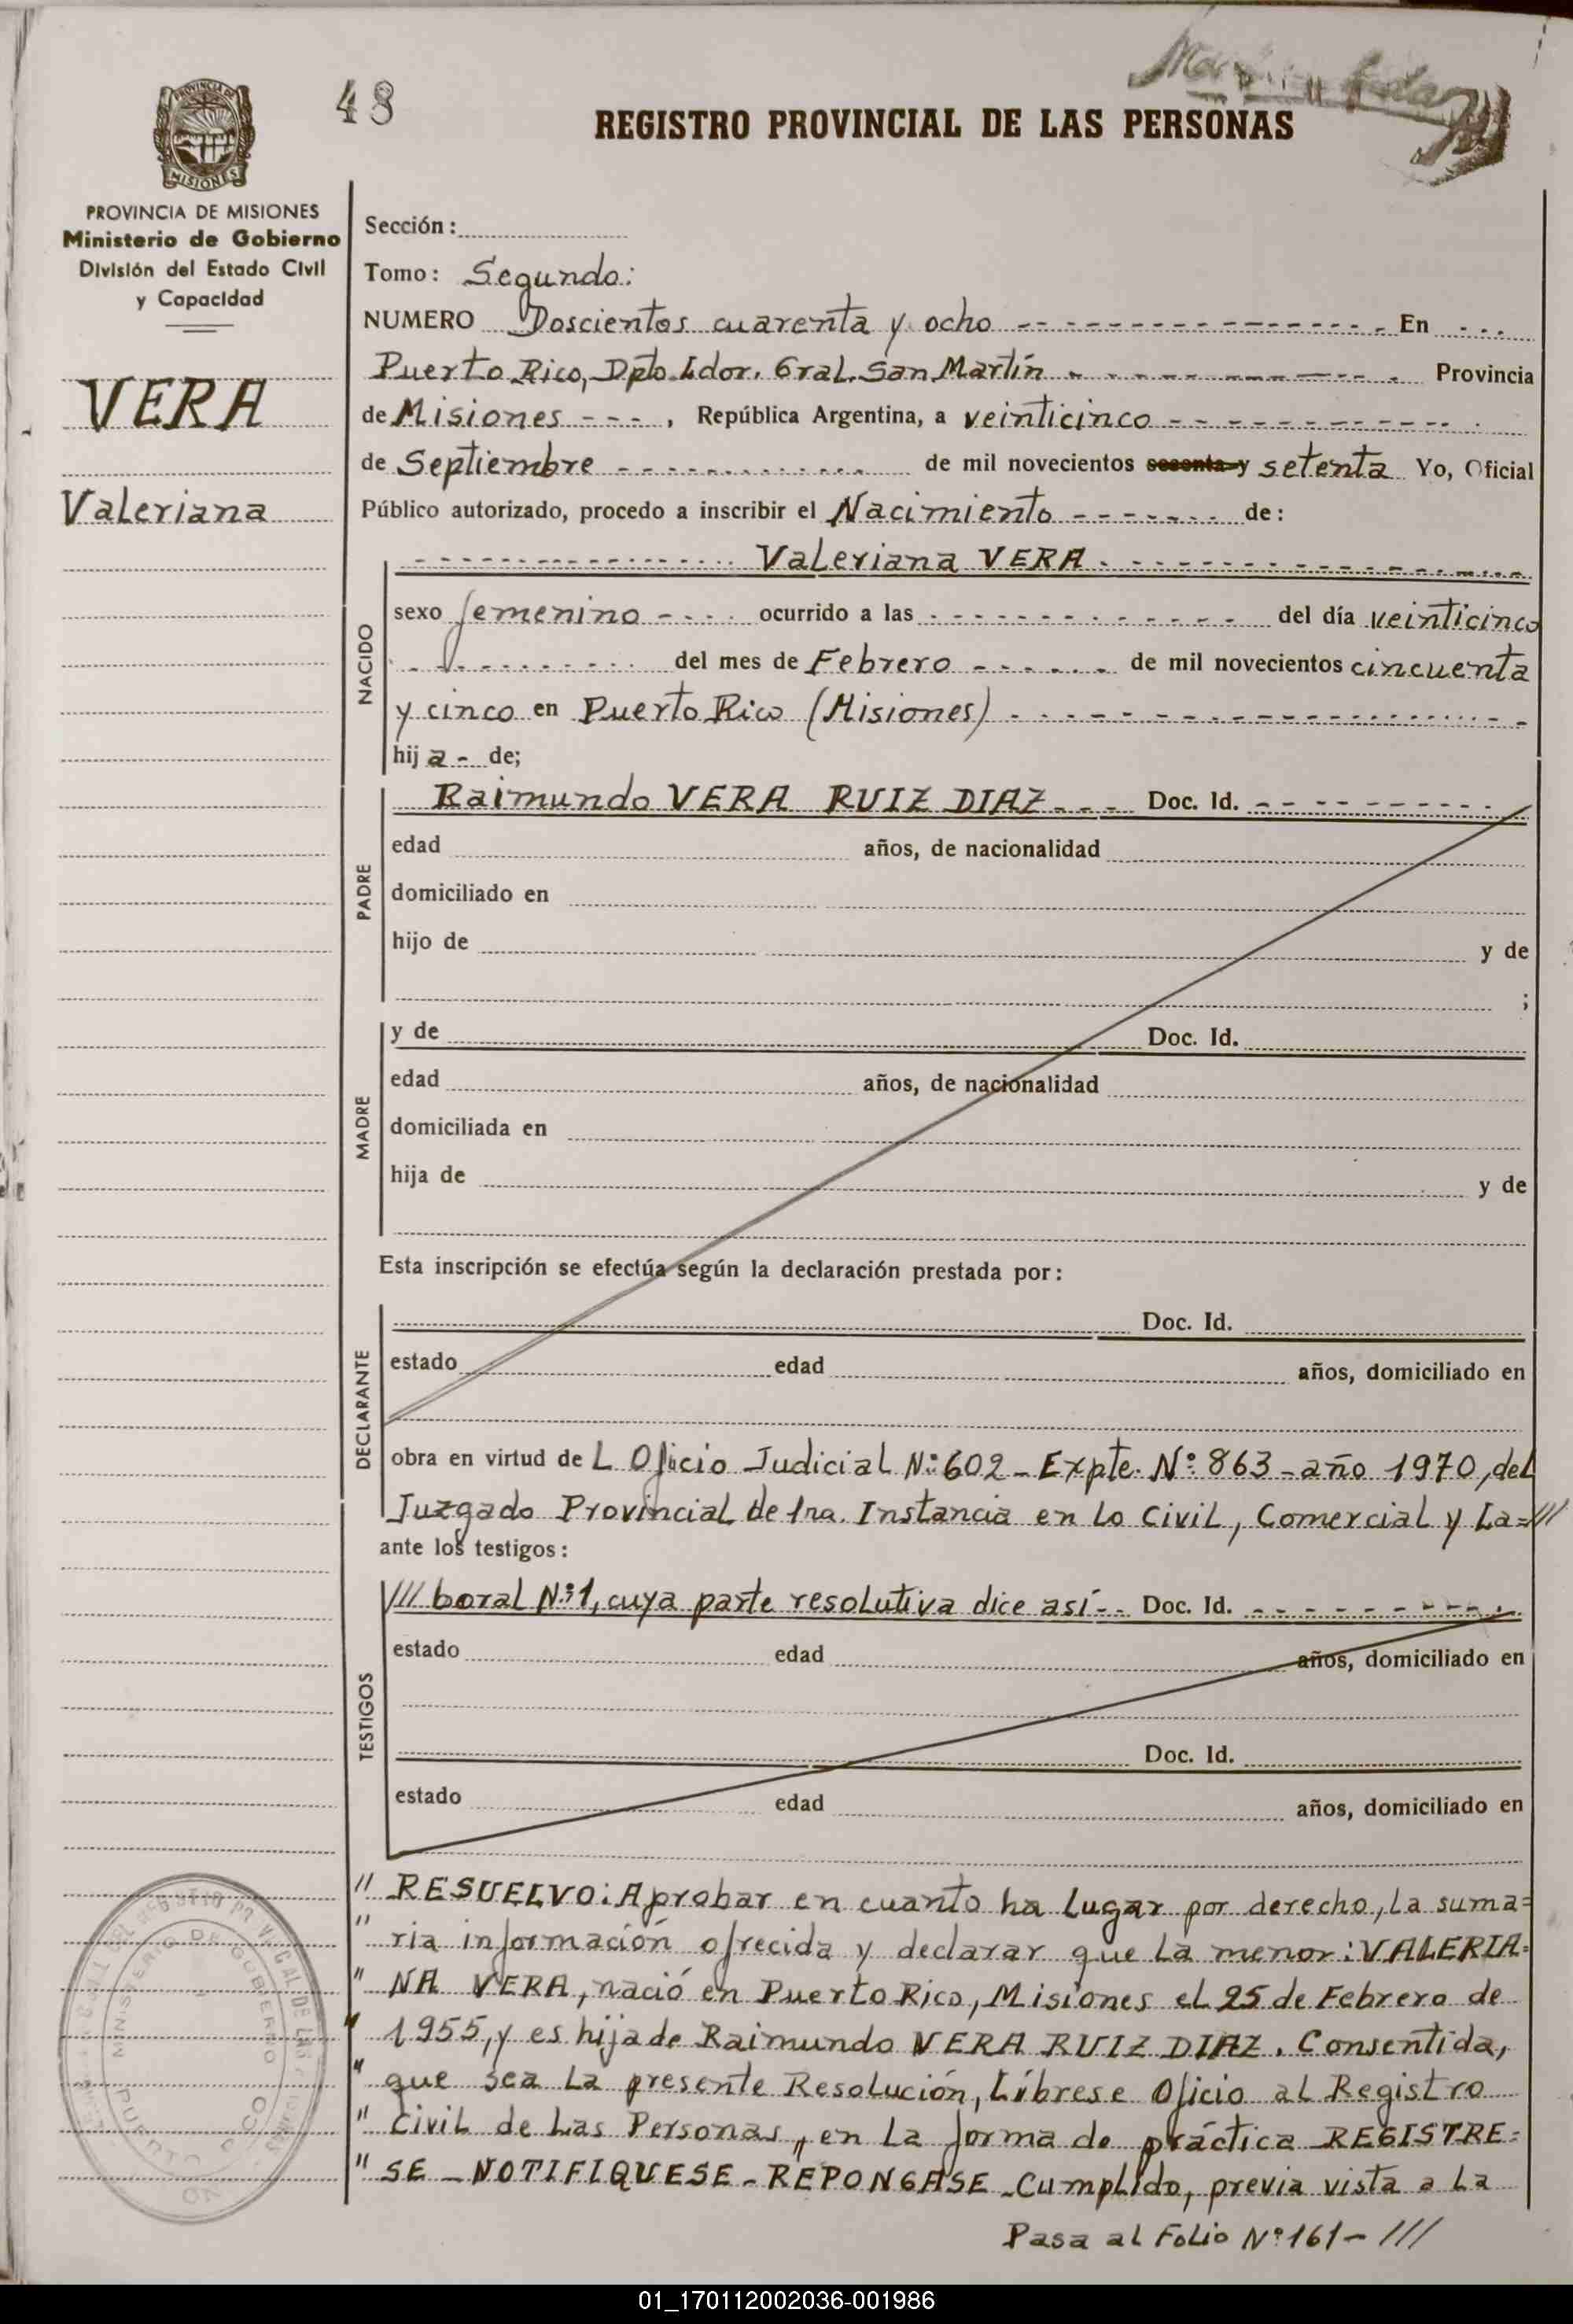 48
REGISTRO PROVINCIAL DE LAS PERSONAS
PROVINCIA DE MISIONES
MISIONES
PROVINCIA DE MISIONES
Ministerio de Gobierno
División del Estado Civil
y Capacidad
VERA
Valeriana
Sección:
Tomo: Segundo:
NUMERO Doscientos cuarenta y ocho - - - - - - - - - - - - - - - En - - -
Puerto Rico, Dpto. Ldor. Gral. San Martín - - - - - - - - - - Provincia
de Misiones - - - , República Argentina, a veinticinco - - - - - - - - - - -
de Septiembre - - - - - - - - - - - de mil novecientos sesenta y setenta Yo, Oficial
Público autorizado, procedo a inscribir el Nacimiento - - - - - - - de:
- - - - - - - - - - - - - - Valeriana VERA - - - - - - - - - - - - - - -
sexo femenino - - - - ocurrido a las - - - - - - - - - - - - del día veinticinco
- - - - - - - - - del mes de Febrero - - - - - - de mil novecientos cincuenta
y cinco en Puerto Rico (Misiones) - - - - - - - - - - - - - - - - -
NACIDO
hija - de;
Raimundo VERA RUIZ DIAZ - - - Doc. Id. - - - - - - - - -
edad años, de nacionalidad
PADRE
domiciliado en
hijo de y de
;
y de Doc. Id.
edad años, de nacionalidad
MADRE
domiciliada en
hija de y de
Esta inscripción se efectúa según la declaración prestada por:
Doc. Id.
estado edad años, domiciliado en
DECLARANTE
obra en virtud de L Oficio Judicial Nº: 602 - Expte. Nº: 863 - año 1970, del
Juzgado Provincial de 1ra. Instancia en lo Civil, Comercial y La=///
ante los testigos:
/// boral Nº: 1, cuya parte resolutiva dice así - - Doc. Id. - - - - - - - - -
estado edad años, domiciliado en
TESTIGOS
Doc. Id.
estado edad años, domiciliado en
" RESUELVO: Aprobar en cuanto ha lugar por derecho, la suma=
" ria información ofrecida y declarar que la menor: VALERIA=
" NA VERA, nació en Puerto Rico, Misiones el 25 de Febrero de
" 1955, y es hija de Raimundo VERA RUIZ DIAZ. Consentida,
" que sea la presente Resolución, Líbrese Oficio al Registro
" Civil de Las Personas, en la forma de práctica REGISTRE=
" SE - NOTIFIQUESE - REPONGASE - Cumplido, previa vista a la
Pasa al Folio Nº 161 - ///
MINISTERIO DE GOBIERNO
PUERTO RICO
01_170112002036-001986